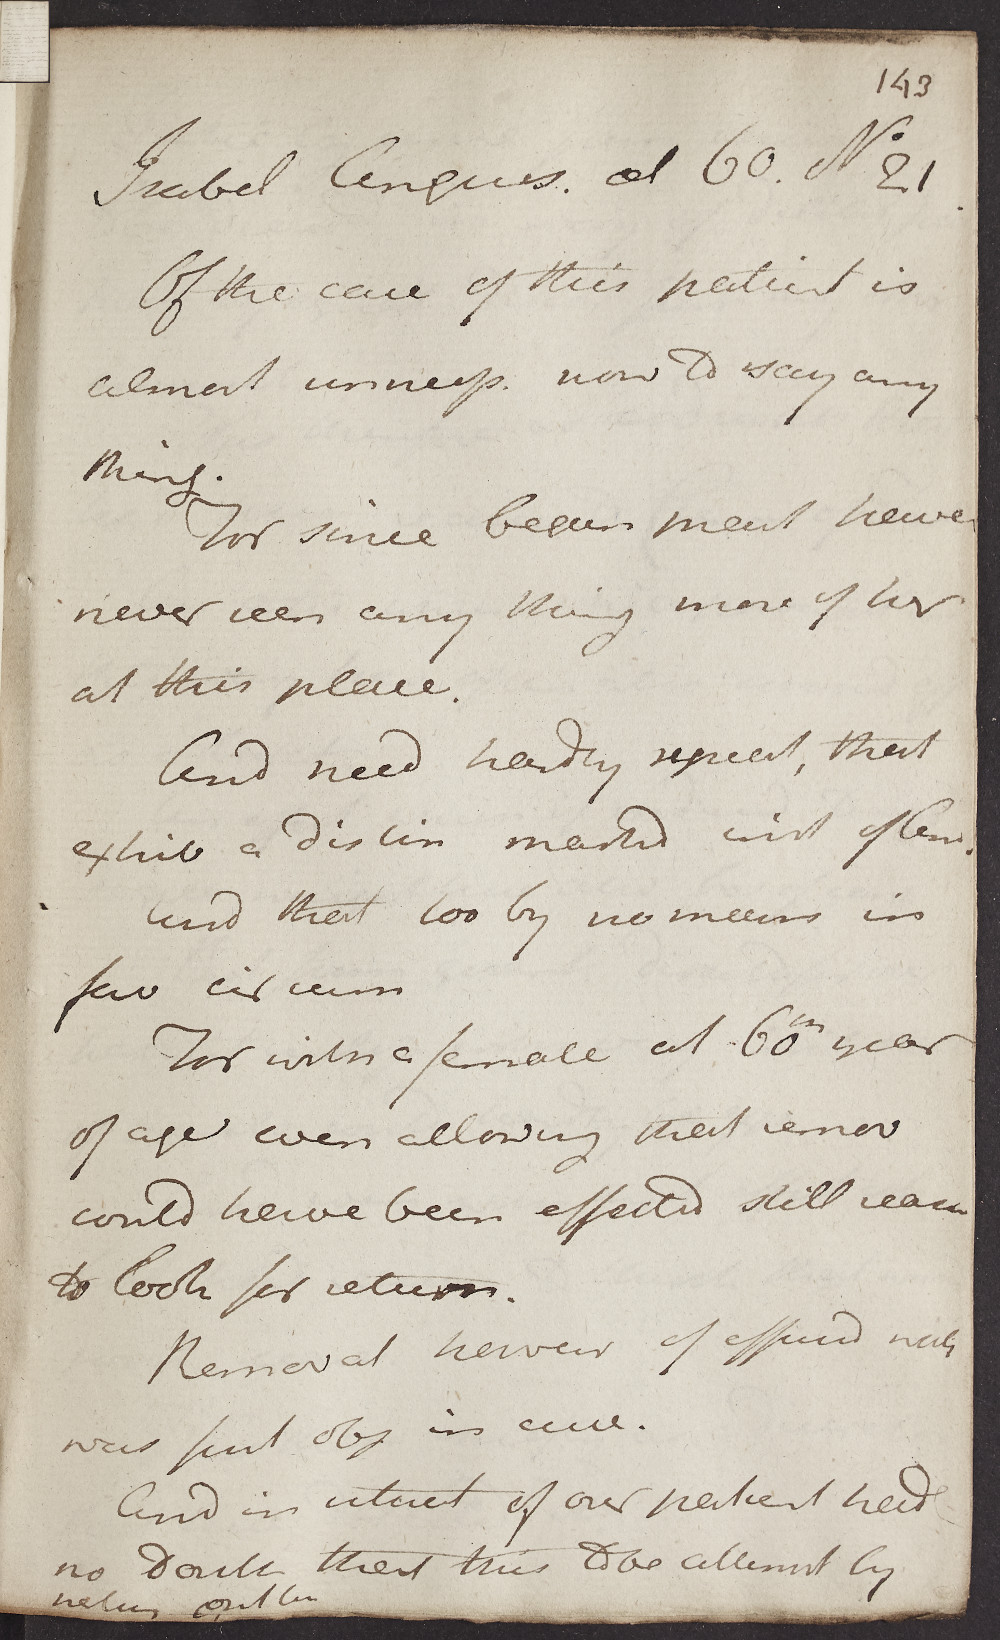 143
Isabel Angus. æt 60. No 21
Of the case of this patient is
almost unnecess. now to say any
thing.
For since began meet have
never seen any thing more of her
at this place.
And need hardly repeat, that
exhib a distin marked inst of
And that too by no means in
fav circum
For with a female at 60th year
of age even allowing that remov
could have been effected still reason
to look for return.
Removal however of effused
was first obj in cure.
And in of our patient had
no doubt that this to be attempt by